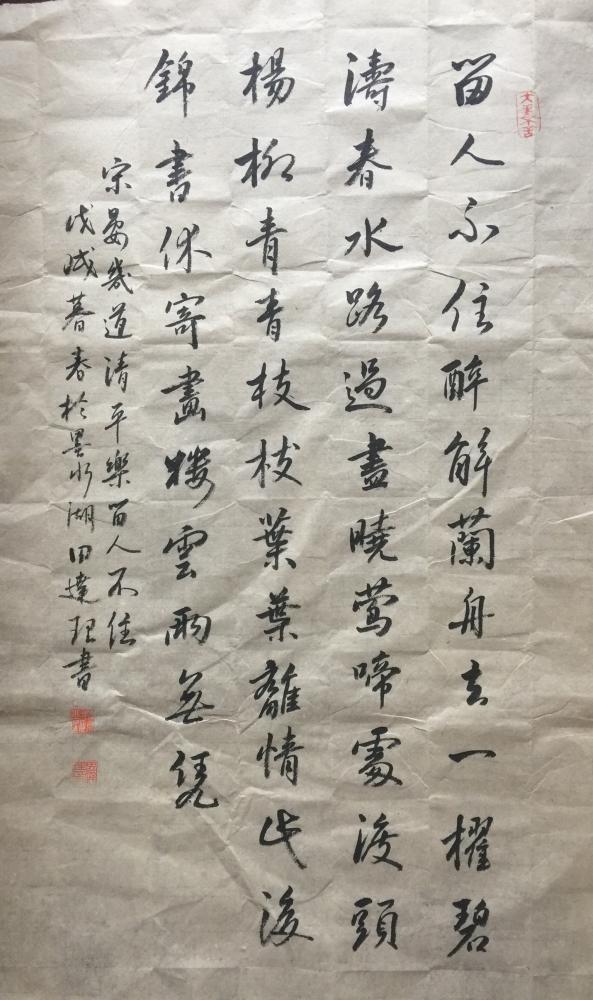 留人不住醉解蘭舟去一櫂碧
濤春水路過盡曉莺啼處渡頭
楊柳青青枝枝葉葉離情此後
錦書休寄畫樓雲雨無凭
宋晏幾道清平樂留人不住
戊戌暮春於墨水湖田達理書